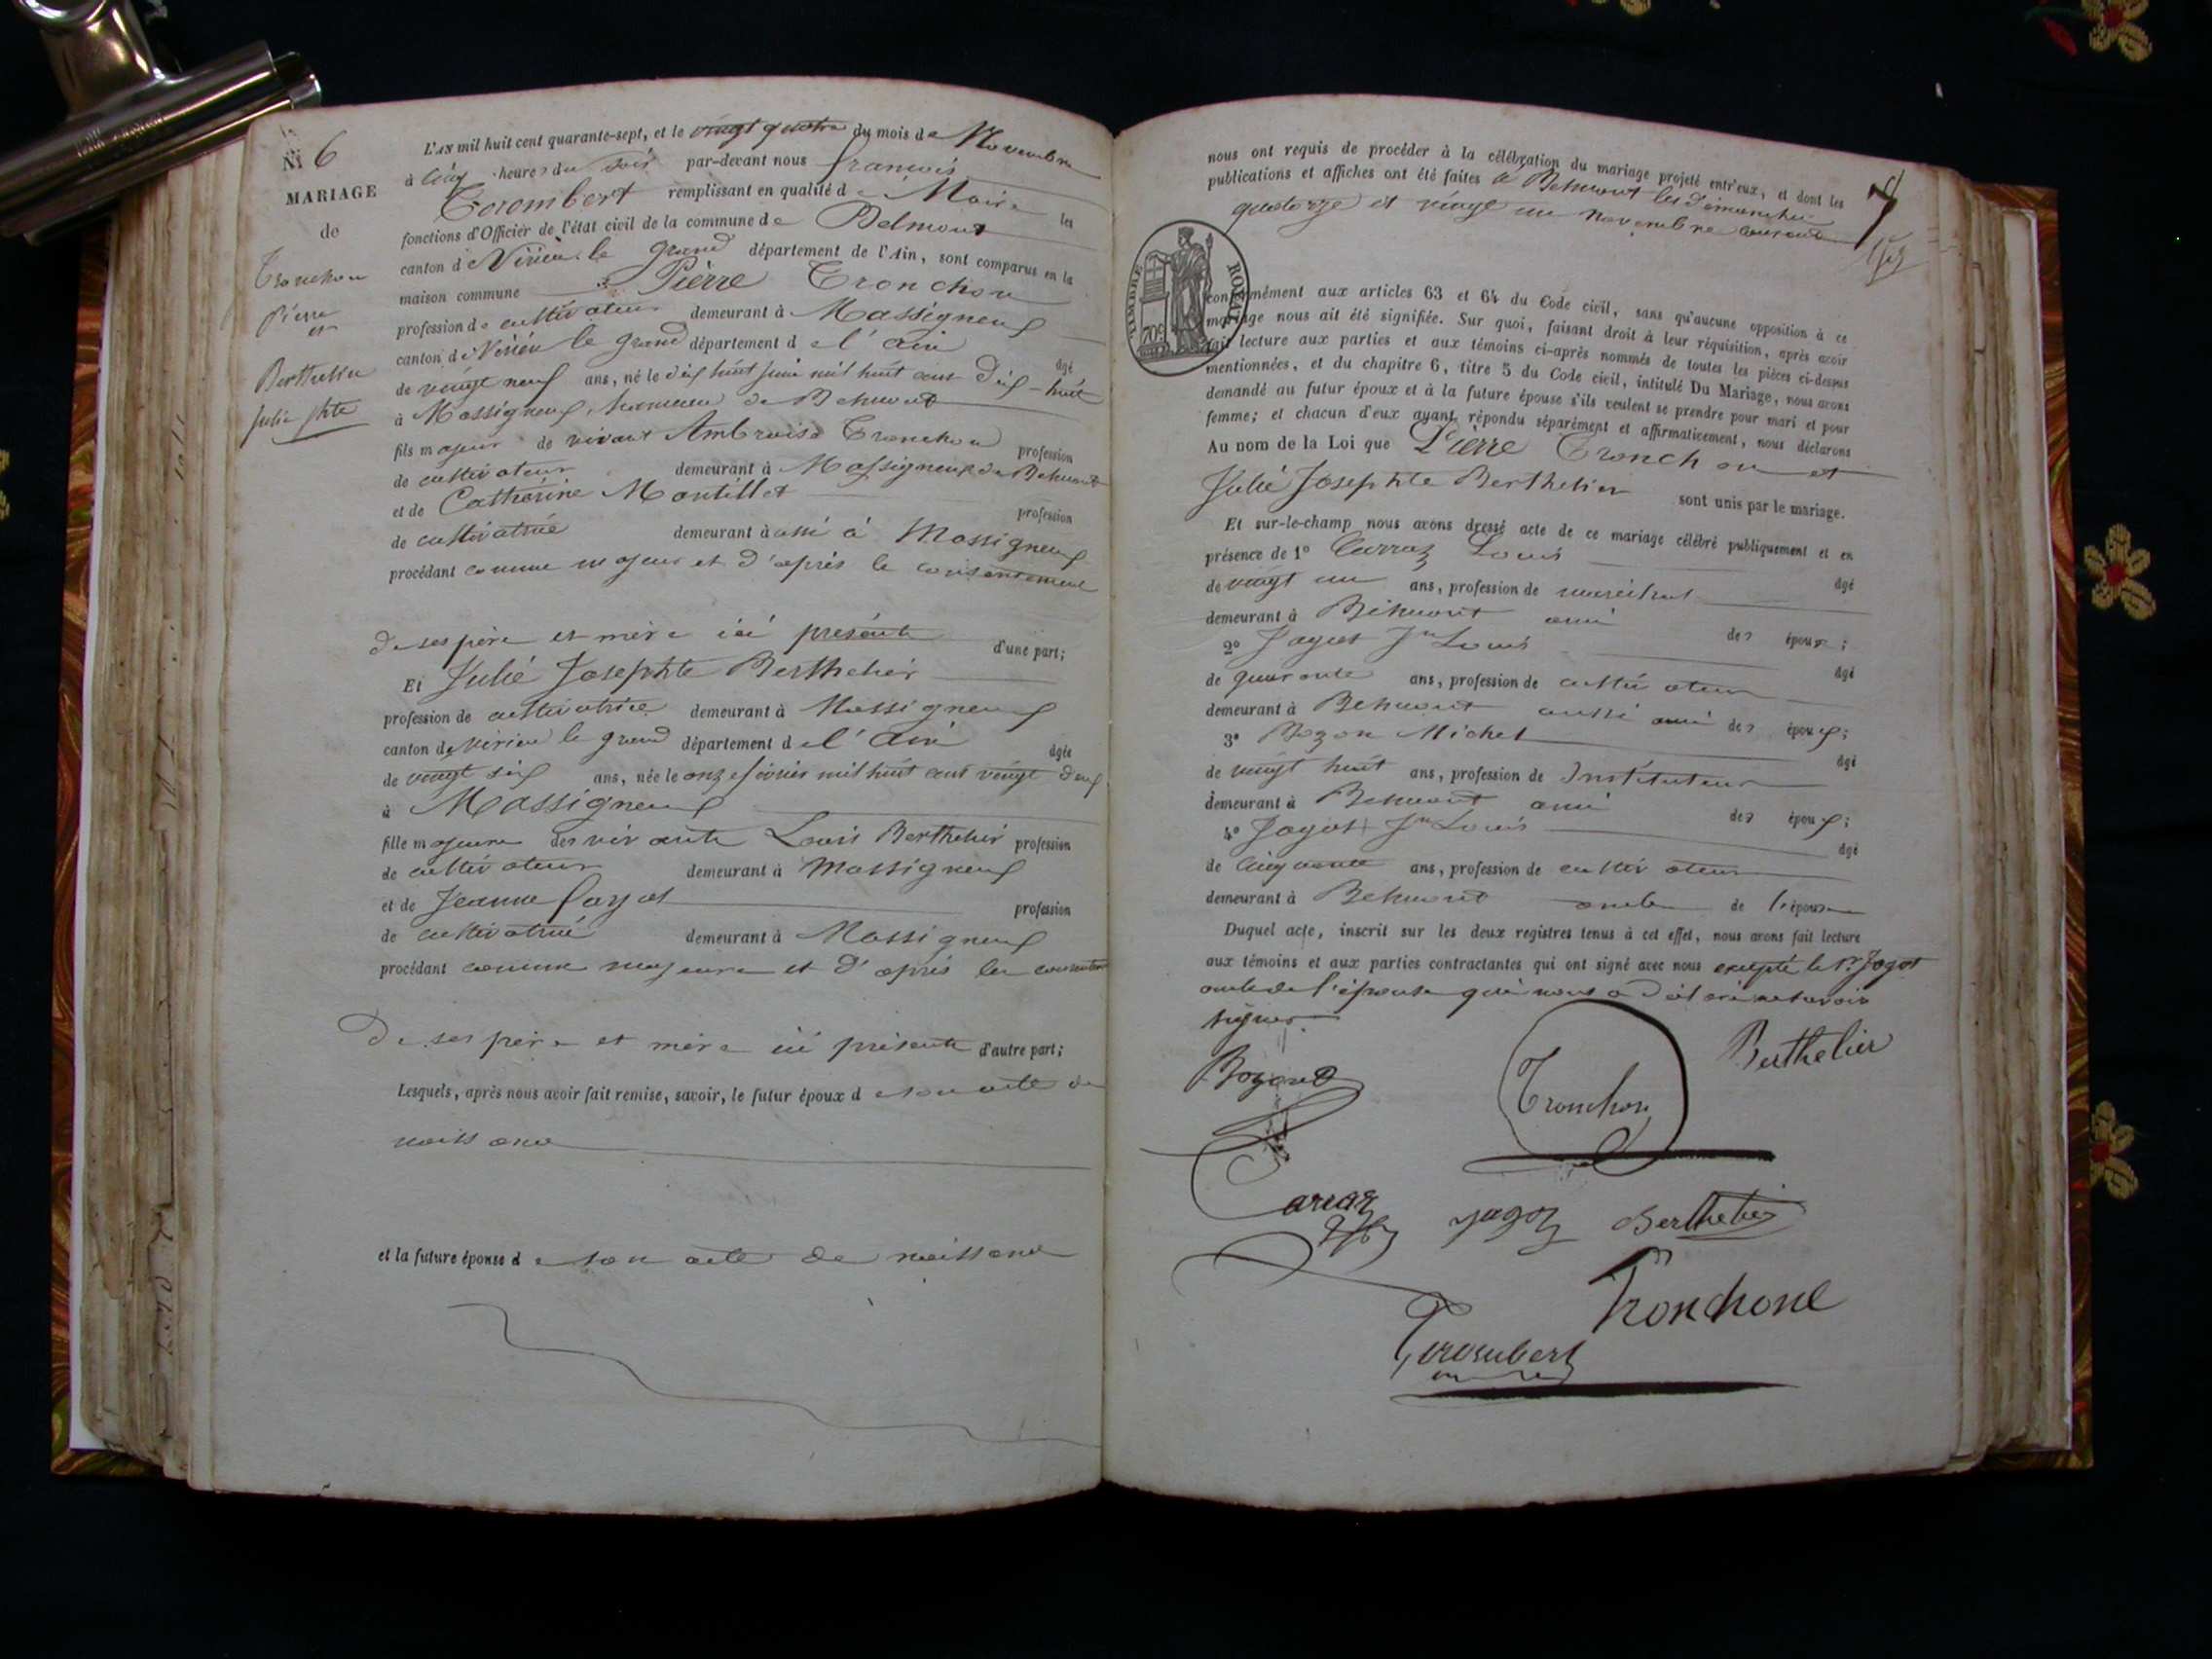 N° 6
MARIAGE
de
Tronchon
Pierre
et
Berthelier
Julie Jphte
L'AN mil huit cent quarante-sept, et le vingt quatre du mois de Novembre
à cinq heures du soir par-devant nous francois
Torombert remplissant en qualité de Maire les
fonctions d'Officier de l'état civil de la commune de Belmont
canton de Virieu le grand département de l'Ain, sont comparus en la
maison commune Pierre Tronchon
profession de cultivateur demeurant à Massigneux
canton de Virieu le grand département de l'ain âgé
de vingt neuf ans, né le dix huit juin mil huit cent dix-huit
à Massigneux, hameau de Belmont
fils majeur de vivant Ambroise Tronchon profession
de cultivateur demeurant à Massigneux de Belmont
et de Catherine Montillet profession
de cultivatrice demeurant à aussi à Massigneux
procédant comme majeur et d'après le consentement
de ses père et mère ici présents d'une part;
Et Julie Josephte Berthelier
profession de cultivatrice demeurant à Massigneux
canton de Virieu le grand département de l'ain âgée
de vingt six ans, née le onze février mil huit cent vingt deux
à Massigneux
fille majeure des vivants Louis Berthelier profession
de cultivateur demeurant à Massigneux
et de Jeanne Jayot profession
de cultivatrice demeurant à Massigneux
procédant comme majeure et d'après le
de ses père et mère ici présents d'autre part;
Lesquels, après nous avoir fait remise, savoir, le futur époux de son acte de
naissance
et la future épouse de son acte de naissance
nous ont requis de procéder à la célébration du mariage projeté entr'eux, et dont les
publications et affiches ont été faites à Belmont les dimanches
quatorze et vingt un novembre courant
TIMBRE ROYAL
70c
conformément aux articles 63 et 64 du Code civil, sans qu'aucune opposition à ce
mariage nous ait été signifiée. Sur quoi, faisant droit à leur réquisition, après avoir
fait lecture aux parties et aux témoins ci-après nommés de toutes les pièces ci-dessus
mentionnées, et du chapitre 6, titre 5 du Code civil, intitulé Du Mariage, nous avons
demandé au futur époux et à la future épouse s'ils veulent se prendre pour mari et pour
femme; et chacun d'eux ayant répondu séparément et affirmativement, nous déclarons
Au nom de la Loi que Pierre Tronchon et
Julie Josephte Berthelier sont unis par le mariage.
Et sur-le-champ nous avons dressé acte de ce mariage célébré publiquement et en
présence de 1° Carraz Louis âgé
de vingt un ans, profession de marechal
demeurant à Belmont ami des époux;
2° Jagot Jn Louis âgé
de quarante ans, profession de cultivateur
demeurant à Belmont aussi ami des époux;
3° Bozon Michel âgé
de vingt huit ans, profession de Instituteur
demeurant à Belmont ami des époux;
4° Jagot Jn Louis âgé
de cinquante ans, profession de cultivateur
demeurant à Belmont oncle de l'épouse
Duquel acte, inscrit sur les deux registres tenus à cet effet, nous avons fait lecture
aux témoins et aux parties contractantes qui ont signé avec nous excepté le Sr Jagot
oncle de l'épouse qui nous a déclaré ne savoir
signer
Berthelier
Tronchon
Carraz
Jagot Berthelier
Tronchone
Torombert